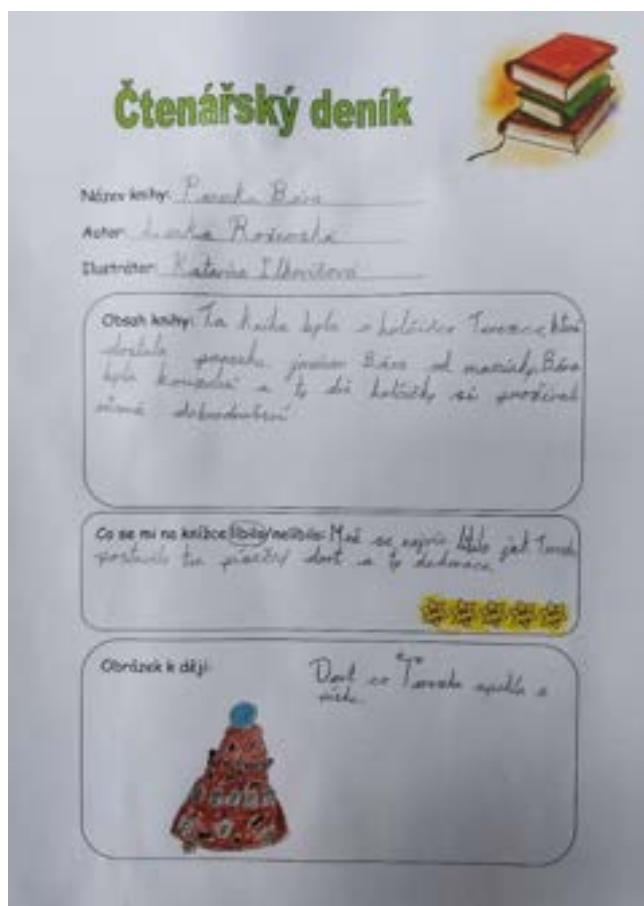 Čtenářský deník
Název knihy: Bára
Autor: Lenka Rožnovská
Ilustrátor: Katarína Ilkovičová
Obsah knihy: Ta kniha byla o holčičce Terezce, která
dostala panenku jménem Bára od maminky. Bára
byla kouzelná a ty dvě holčičky si prožívali
různá dobrodružství
Co se mi na knížce líbilo/nelíbilo: Mně se nejvíc líbilo jak
postavila ten dort a ty dekorace
Obrázek k ději:
Dort co Terezka upekla z
písku